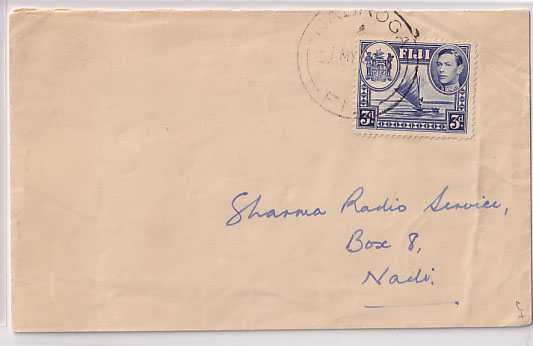 NADROGA
FIJI
FIJI
3d 3d
Sharma Radio Service,
Box 8,
Nadi.